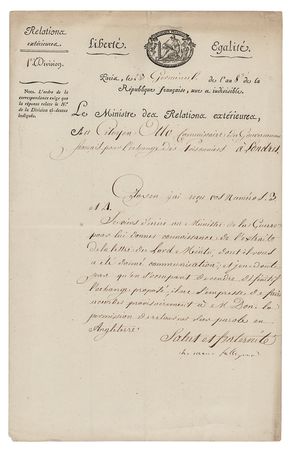 Relations
extérieures
1re Division
Liberté. Egalité.
Note. L'ordre de la
correspondance exige que
la réponse relate le No.
de la Division ci-dessus
indiquée.
Paris, le 3 Germinal de l'an 8 de la
République française, une & indivisible.
Le Ministre des Relations extérieures,
Au Citoyen Otto Commissaire du Gouvernement
français pour l'échange des Prisonniers à Londres
Citoyen j'ai reçu vos Numéros 3
et 4.
Je viens d'écrire au Ministre de la Guerre
pour lui donner connaissance de l'extrait
de la lettre du Lord Minto, dont il vous
a été donné communication; et je ne doute
pas qu'en s'occupant de rendre définitif
l'échange proposé, il ne s'empresse de faire
accorder provisoirement à M. Don la
permission de retourner sur parole en
Angleterre.
Salut et fraternité